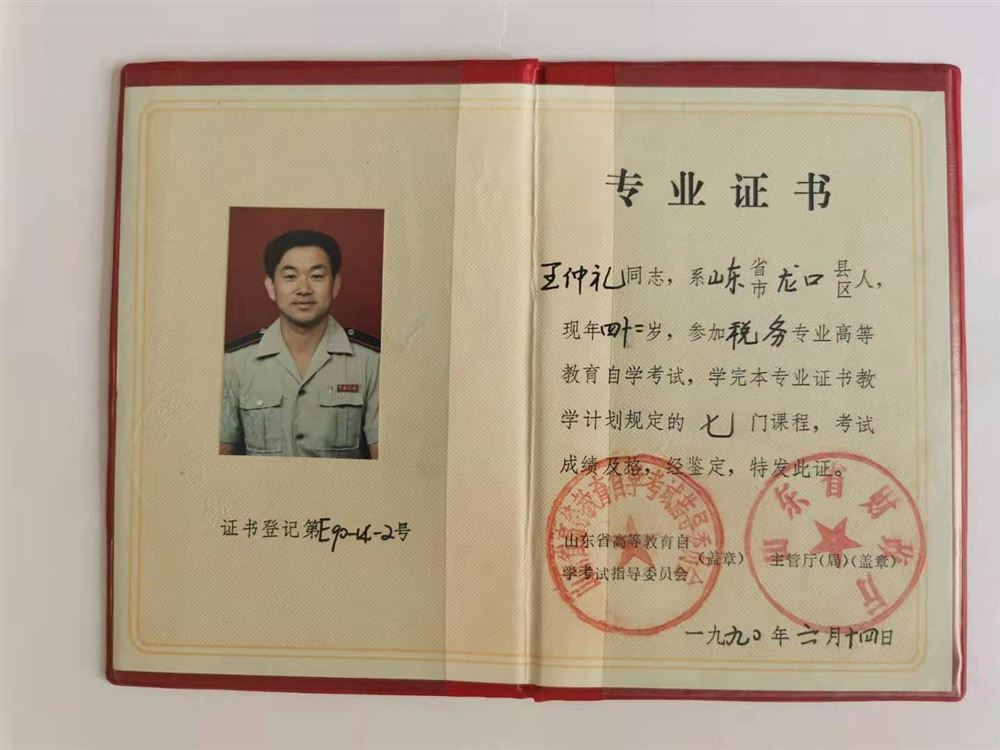 证书登记第E90-14-2号
专业证书
王仲礼同志，系山东省市龙口县区人，
现年四十二岁，参加税务专业高等
教育自学考试，学完本专业证书教
学计划规定的七门课程，考试
成绩及格，经鉴定，特发此证。
山东省高等教育自学考试指导委员会
山东省财政厅
山东省高等教育自
学考试指导委员会
(盖章)
主管厅(局)(盖章)
一九九〇年六月十四日